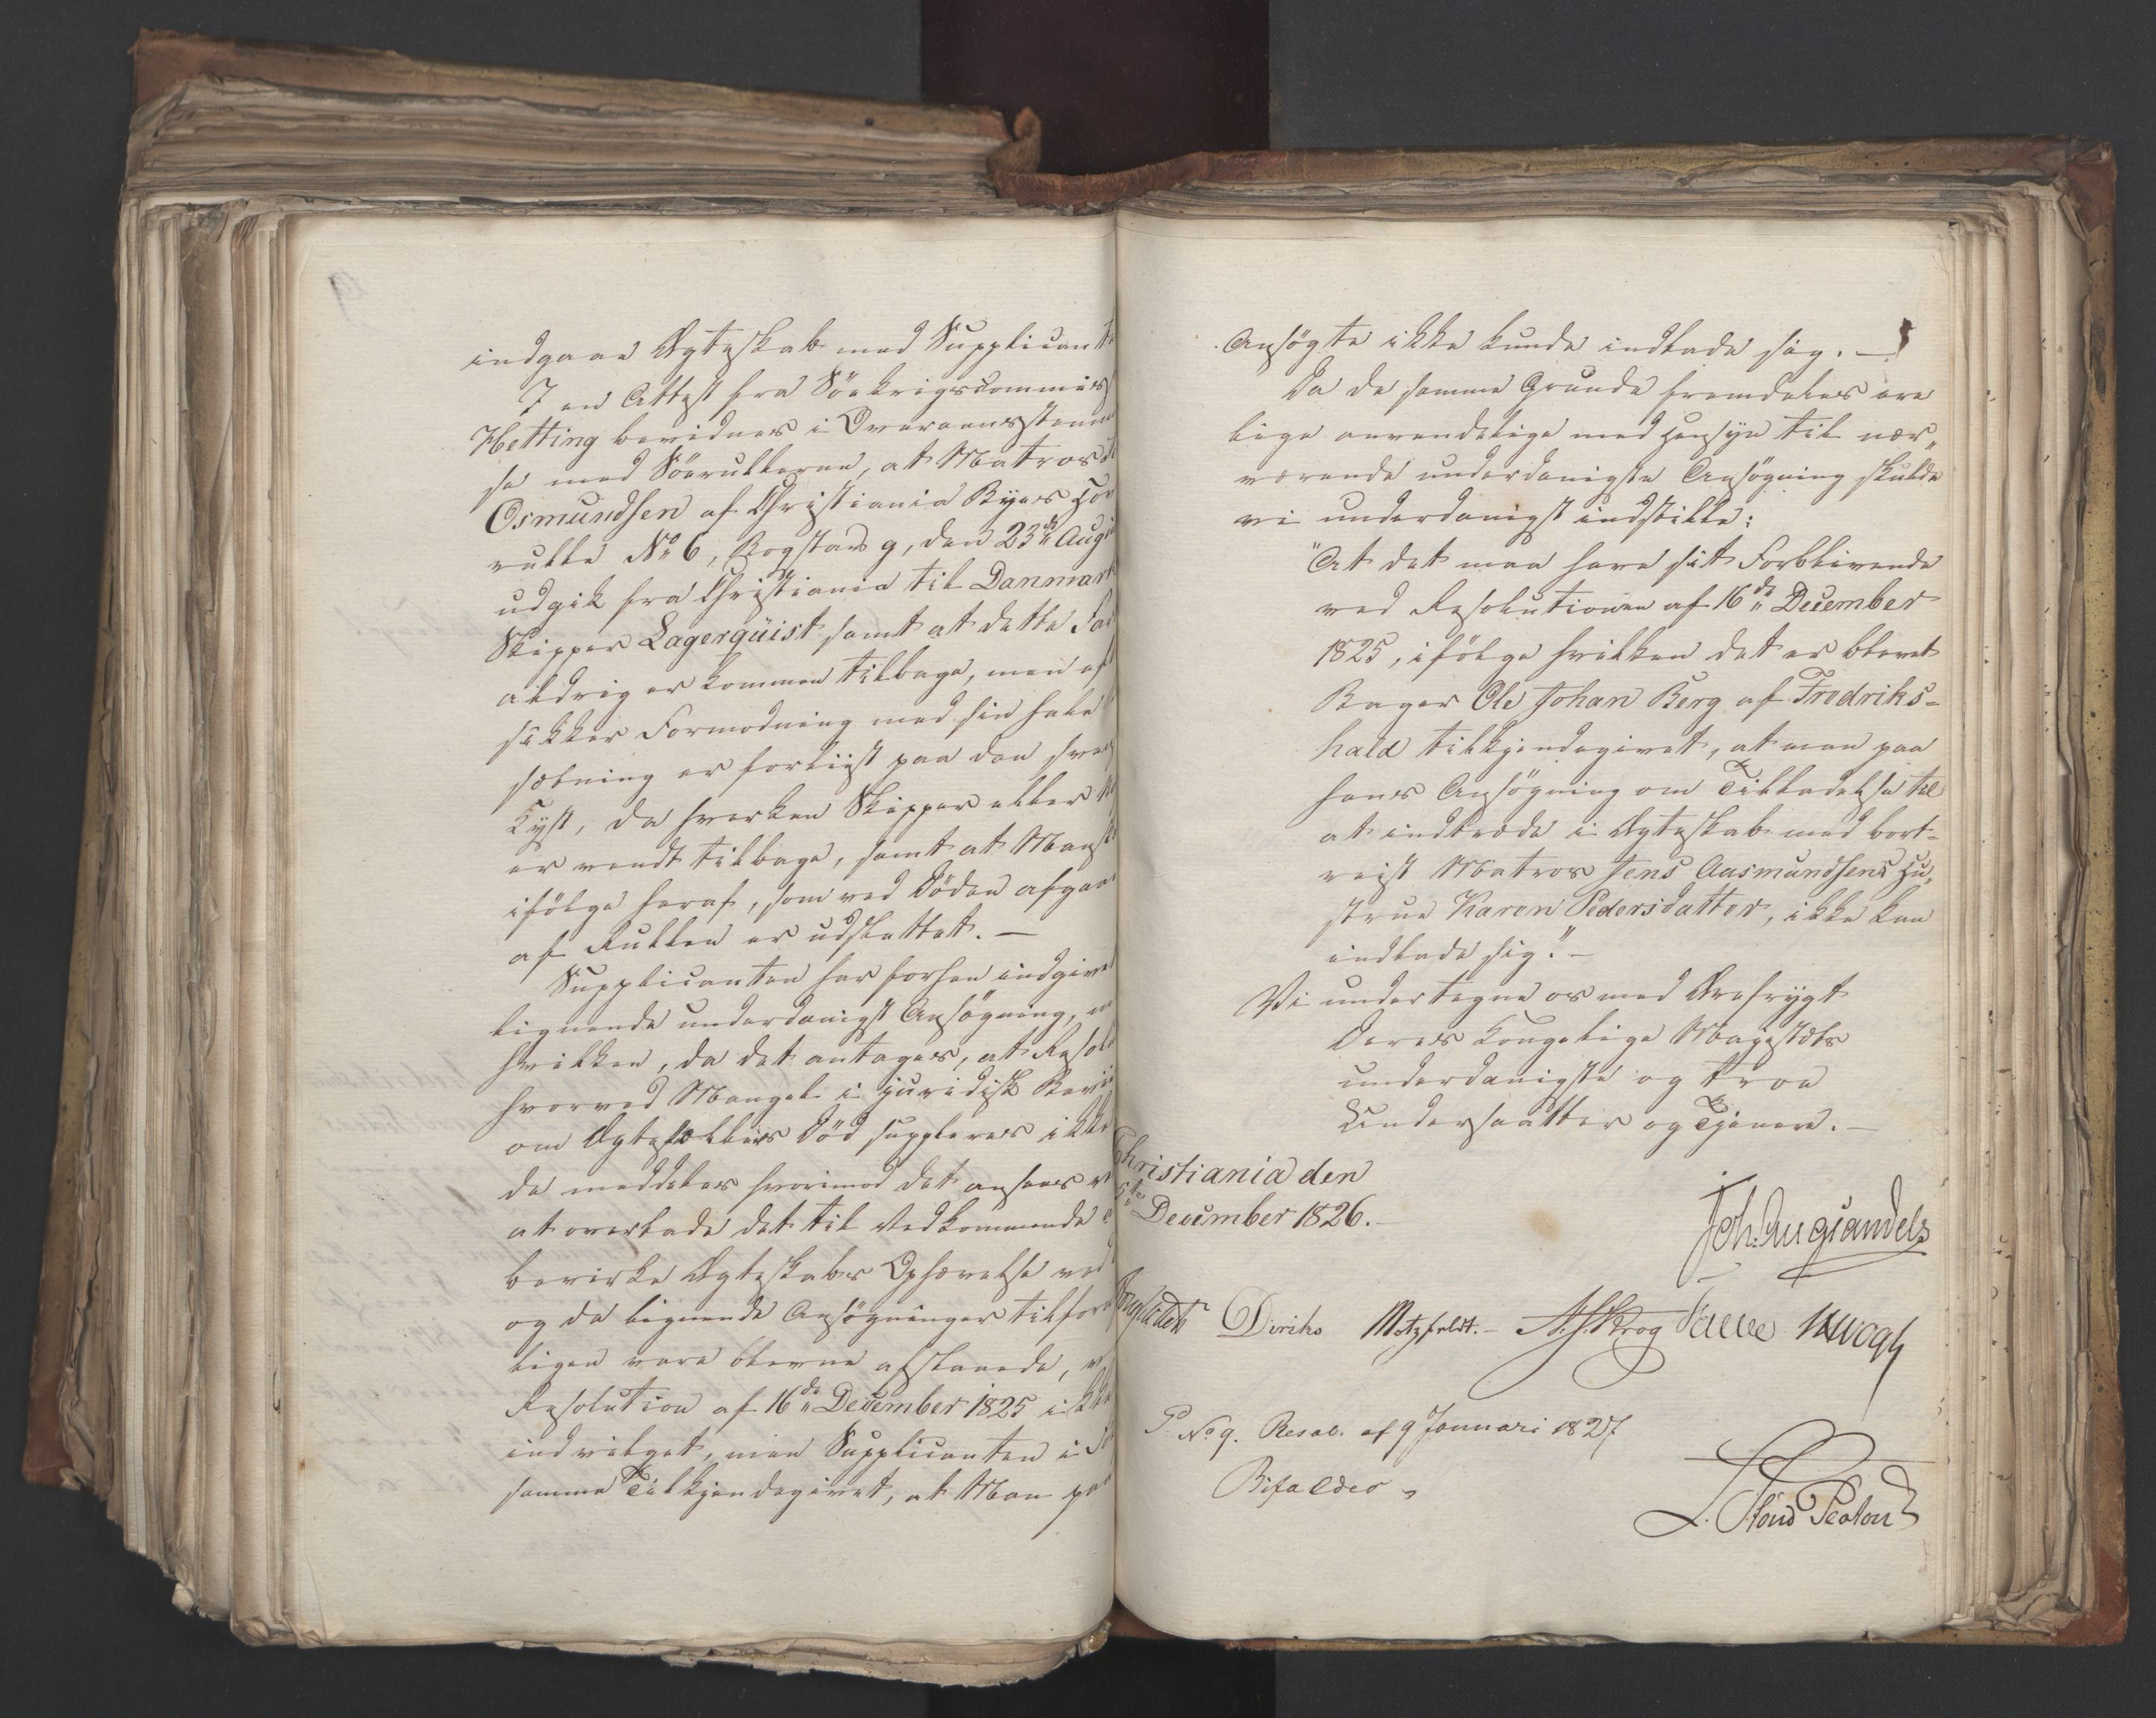 indgaae Ægteskab med Supplicant
I en Attest fra Söekrigscommis
Hetting bevidnes i Overeensstemme
se med Söerullerne, at Matros
Osmundsen af Christiania Byes Ho
rulle No 6, Bogstav g, den 23de Aug
udgik fra Christiania til Danmark
Skipper Lagerquist samt at dette Far
aldrig er kommen tilbage, men eft
sikker Formodning med sin hele
sætning er forliist paa den sven
Kyst, da hverken Skipper eller
er vendt tilbage, samt at Mansk
ifölge heraf, som ved Döden afgaae
af Rullen er udslettet. —
Supplicanten har forhen indgivet
lignende underdanigst Ansögning,
hvilken, da det antages, at Resol
hvorved Mangel i juridisk Bevii
om Ægtefællers Död suppleres ikke
de meddeles hvorimod det ansees
at overlade det til Vedkommende
bevirke Ægteskabs Ophævelse ved
og da lignende Ansögninger tilforn
ligen vare blevne afslaaede,
Resolution af 16de December 1825 ikke
indvilget, men Supplicanten i
samme Tilkjendegivet, at Man paa
Ansögte ikke kunde indlade sig. —
Da de samme Grunde fremdeles ere
lige anvendelige med Hensyn til nær„
værende underdanigste Ansögning skulde
vi underdanigst indstille:
"At det maa have sit Forblivende
ved Resolutionen af 16de December
1825, ifölge hvilken det er blevet
Bager Ole Johan Berg af Fredriks-
hald tilkjendegivet, at man paa
hans Ansögning om Tilladelse til
at indtræde i Ægteskab med bort-
reist Matros Jens Aasmundsens Hu„
strue Karen Pedersdatter, ikke kan
indlade sig." —
Vi undertegne os med Ærefrygt
Deres Kongelige Majestæts
underdanigste og troe
Undersaatter og Tjenere. —
Christiania den
5te December 1826. —
Joh: Aug Sandels
Diriks Motzfeldt. — Krog Fauve
No 9. Resol. af 9 Januari 1827
Bifaldes